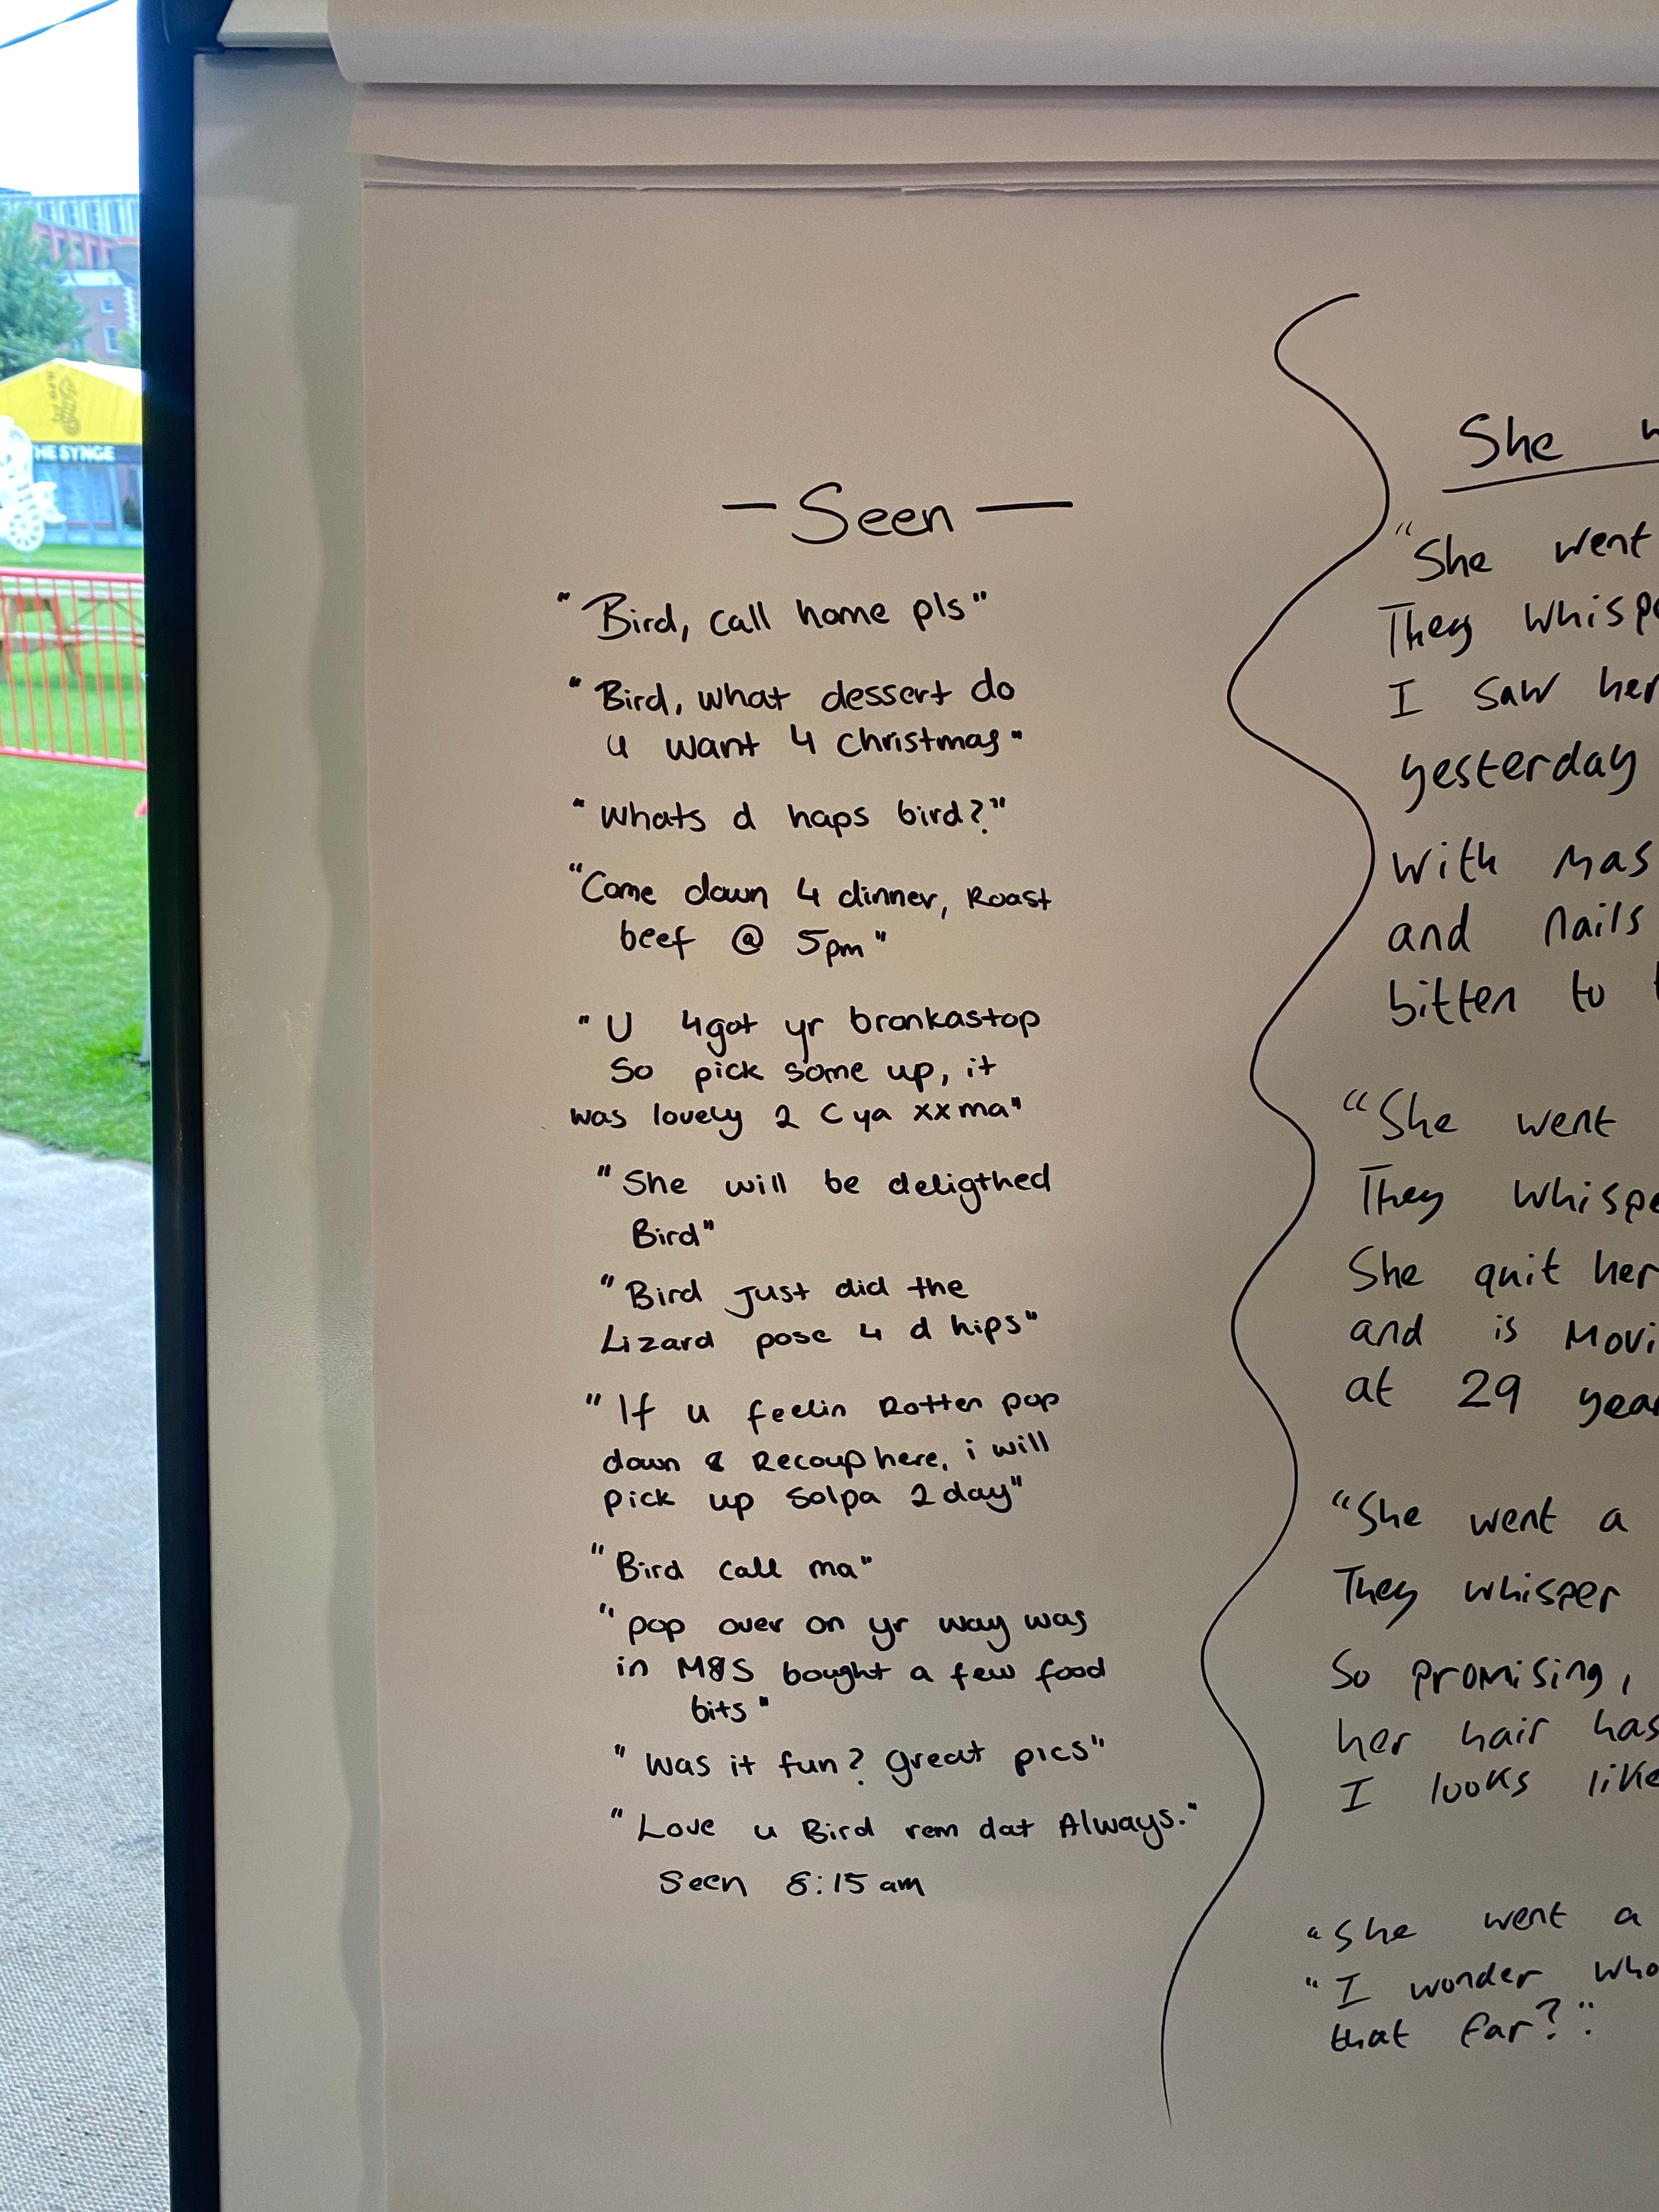 HE SYNGE
— Seen —
"Bird, call home pls"
"Bird, what dessert do
u want 4 Christmas"
"Whats d haps bird?"
"Come down 4 dinner, Roast
beef @ 5pm"
"U 4got yr bronkastop
So pick some up, it
was lovely 2 C ya xx ma"
"She will be deligthed
Bird"
"Bird just did the
Lizard pose 4 d hips"
"If u feelin Rotten pop
down & Recoup here, i will
pick up Solpa 2day"
"Bird call ma"
"pop over on yr way was
in M&S bought a few food
bits"
"Was it fun? great pics"
"Love u Bird rem dat Always."
Seen 8:15 am
She
"She went
They whispe
I saw her
yesterday
with mas
and nails
bitten to
"She went
They whispe
She quit her
and is Movi
at 29 year
"She went a
They whisper
So promising,
her hair has
I looks like
"She went a
"I wonder who
that far?".